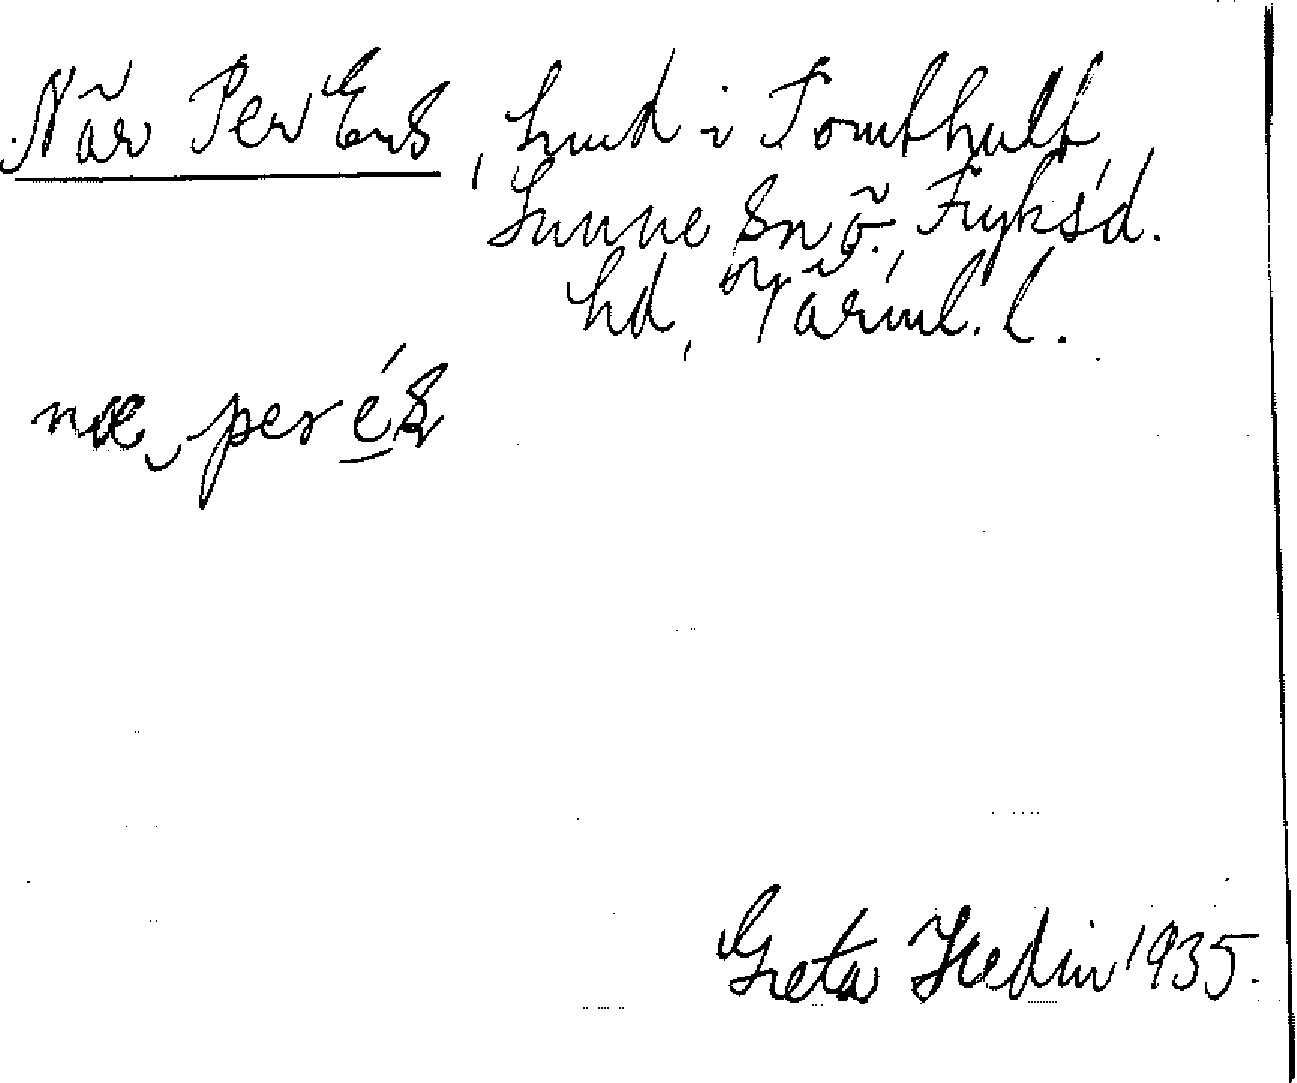 När Per Ers, hmd i Tomthult,
Sunne sn ö. Fryksd.
hd, Värml. l.
næ, per
Greta Hedin 1935.